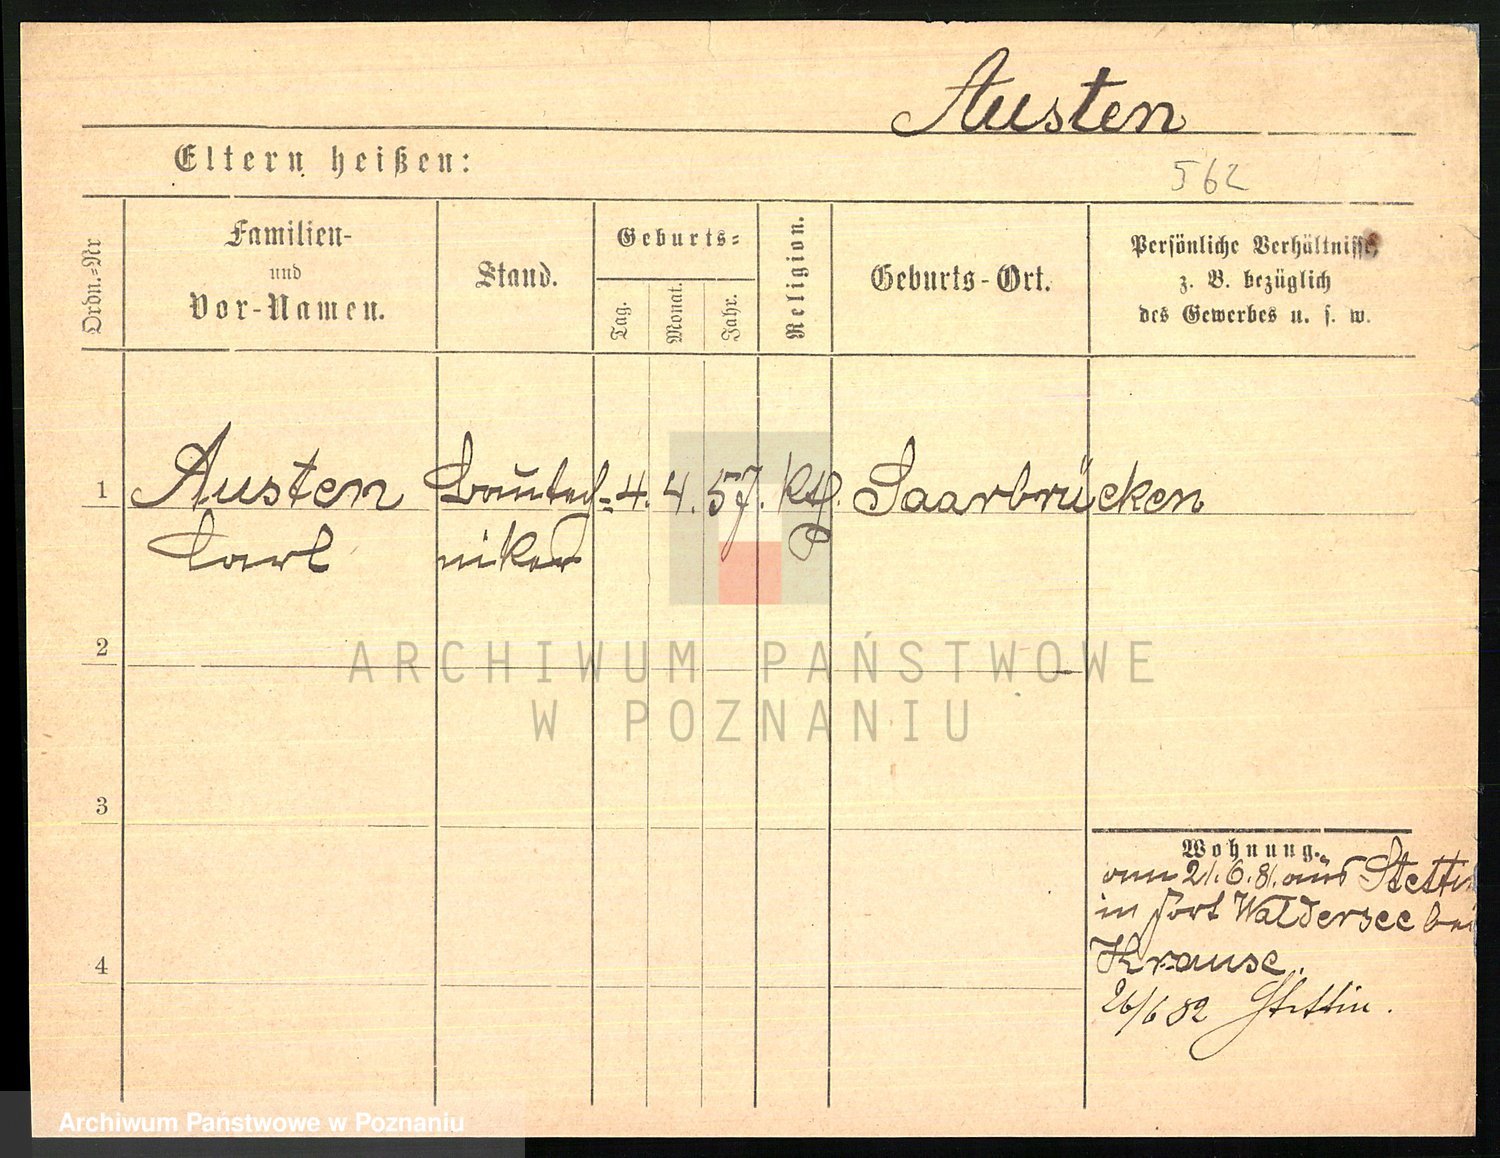 Austen
Eltern heißen:
562
Ordn.=Nr
Familien-
und
Vor-Namen.
Stand.
Geburts=
Tag.
Monat.
Jahr.
Religion.
Geburts-Ort.
Persönliche Verhältnisse,
z. B. bezüglich
des Gewerbes u. s. w.
1
Austen Bautech= 4. 4. 57. kth. Saarbrücken
Carl niker
2
ARCHIWUM PAŃSTWOWE
W POZNANIU
3
Wohnung.
vom 21.6.81. aus Stettin
in Fort Waldersee bei
Krause.
4
26/6 82 Stettin.
Archiwum Państwowe w Poznaniu